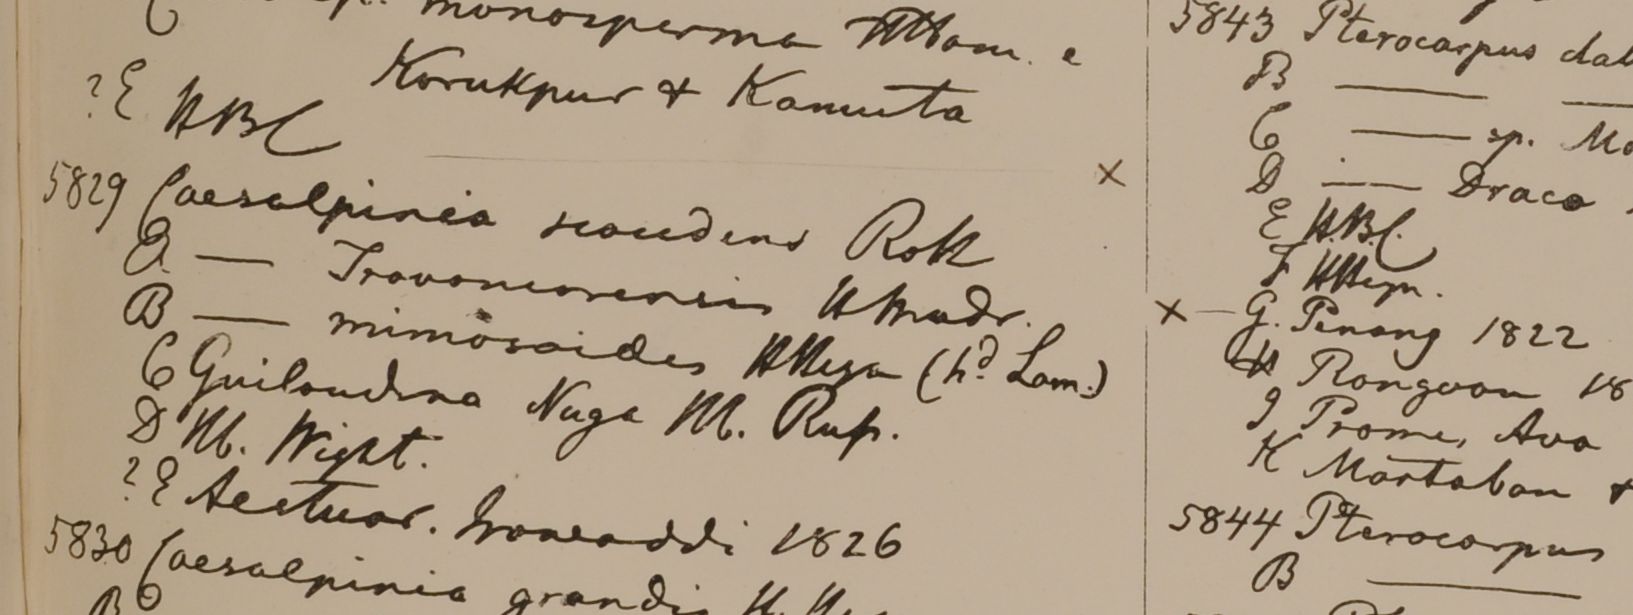 monosperma Ham. e
Korukpur & Kamuta
? E HBC
5829 Caesalpinia scandens Roth
a. — Travancorensis H Madr.
B — mimosoides HHeyn (hd. Lam.)
C Guilandina Nuga M. Rup.
D H. Wight.
? E Aestuar. Irawaddi 1826
5830 Caesalpinia grandis H.
B
5843 Pterocarpus dal
B — —
C — sp.
D — Draco
E H.B.C.
F HHeyn.
G. Penang 1822
H Rangoon 18
I Prome, Ava
K Martaban &
5844 Pterocarpus
B —